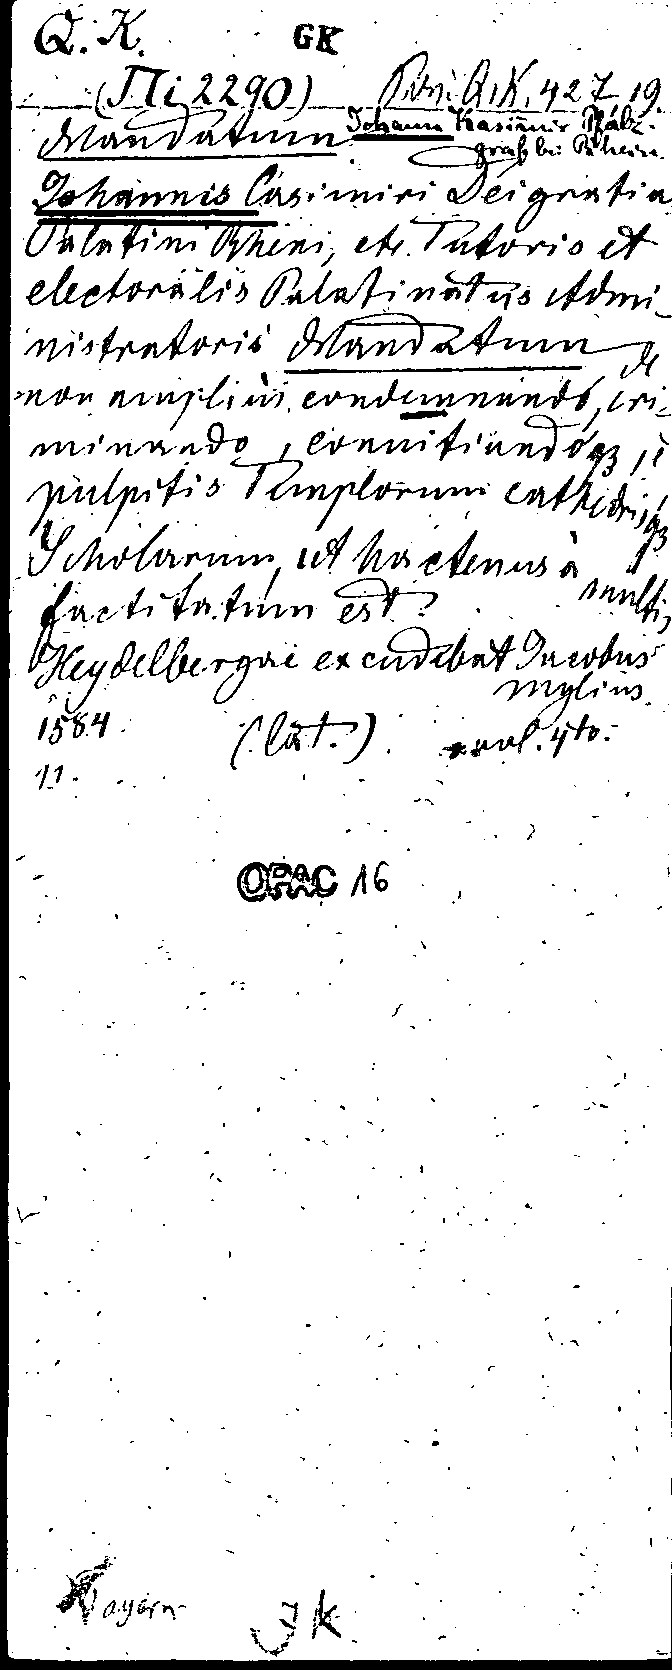 Q. K. GK
(Пi 2290) Q. K. 427, 19.
Mandatum Johann Kasimir Pfalz-
graf bei Rhein.
Johannis Casimiri Dei gratia
Palatini Rheni, etc. Tutoris et
electoralis Palatinatus Admi-
nistratoris Mandatum de
non amplius condemnando, cri-
minando, convitiandoqz,
pulpitis Templorum cathedrisqz
Scholarum, ut hactenus à
multis
factitatum est.
Heydelbergae excudebat Jacobus
Mylius.
1584. (lat.) vol. 4to.
11.
OPAC 16
Bayern
JK